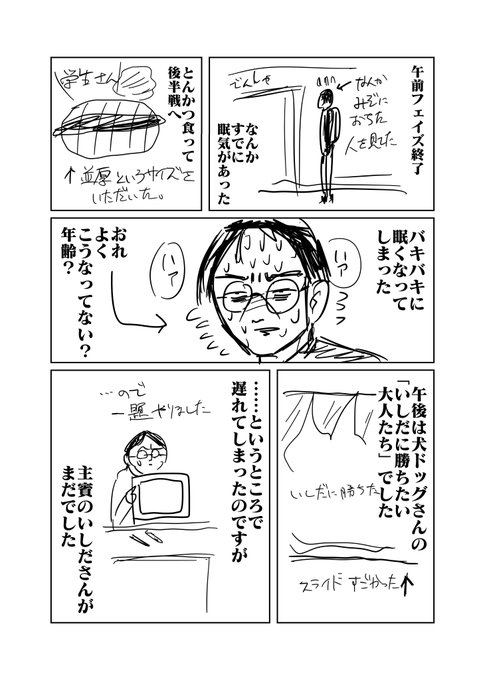 午前フェイズ終了
なんか
みぞに
おちた
人を見てた
でんしゃ
なんか
すでに
眠気があった
とんかつ食って
後半戦へ
学生さん
↑並厚というサイズを
いただいた。
バキバキに
眠くなって
しまった
いァ
いァ
おれ
よく
こうなってない？
年齢？
午後は犬ドッグさんの
「いしだに勝ちたい
大人たち」でした
いしだに勝ちた
スライドすごかった↑
……というところで
遅れてしまったのですが
…ので
一題やりました
主賓のいしださんが
まだでした